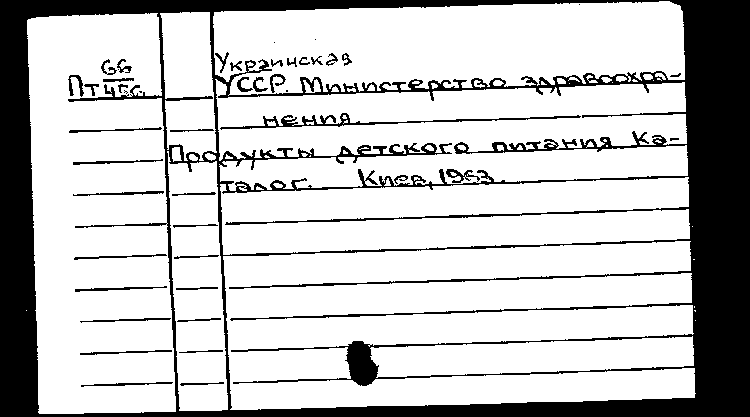 Украинская
66
Пт456 УССР. Министерство здравоохра-
нения.
Продукты детского питания Ка-
талог. Киев, 1963.